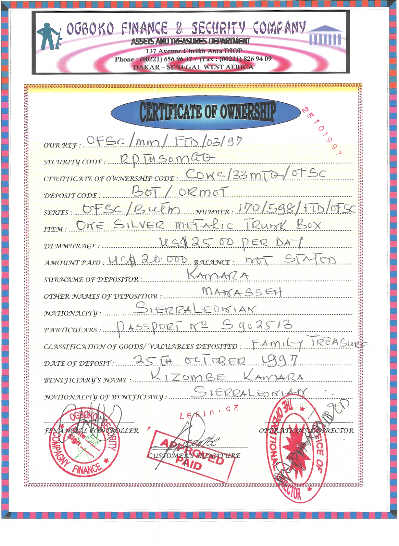 OGBOKO FINANCE & SECURITY COMPANY
ASSETS AND TREASURES DEPARTMENT
137 Avenue Cheikh Anta DIOP
Phone : (00221) 656 96 37 / (Fax : (00221) 826 94 09
DAKAR - SENEGAL WEST AFRICA
CERTIFICATE OF OWNERSHIP
OUR REF : OFSC/MM/ITD/03/97
SECURITY CODE :
CERTIFICATE OF OWNERSHIP CODE : COWC/33MTG/OFSC
DEPOSIT CODE : BOT / ORMOT
SERIES : OFSC/ NUMBER : 170/598/ITD/OFSC
ITEM : ONE SILVER METALIC TRUNK BOX
DEMMURAGE : US$25.00 PER DAY
AMOUNT PAID : US$ 20.000 BALANCE : NOT STATED
SURNAME OF DEPOSITOR : KAMARA
OTHER NAMES OF DEPOSITOR : MAKASSEH
NATIONALITY : SIERRALEONIAN
PARTICULARS : PASSPORT N°
CLASSIFICATION OF GOODS/ VALUABLES DEPOSITED : FAMILY TREASURE
DATE OF DEPOSIT : 25TH OCTOBER 1997
BENEFICIARY'S NAME : KIZOMBE KAMARA
NATIONALITY OF BENEFICIARY : SIERRALEONIAN
FINANCIAL CONTROLLER
CUSTOMER'S SIGNATURE
OPERATIONAL DIRECTOR
OGBOKO SECURITY
COMPAGNY FINANCE
APPROVED
PAID